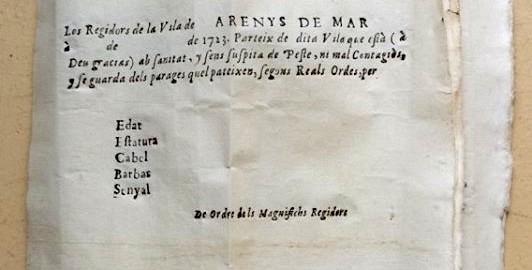 Los Regidors de la Vila de ARENYS DE MAR
à de de 1723. Parteix de dita Vila que està (à
Deu gracias) ab sanitat, y sens suspita de Peste, ni mal Contagiòs,
y se guarda dels parages quel pateixen, segons Reals Ordes, per
Edat
Estatura
Cabel
Barbas
Senyal
De Ordre dels Magnifichs Regidors